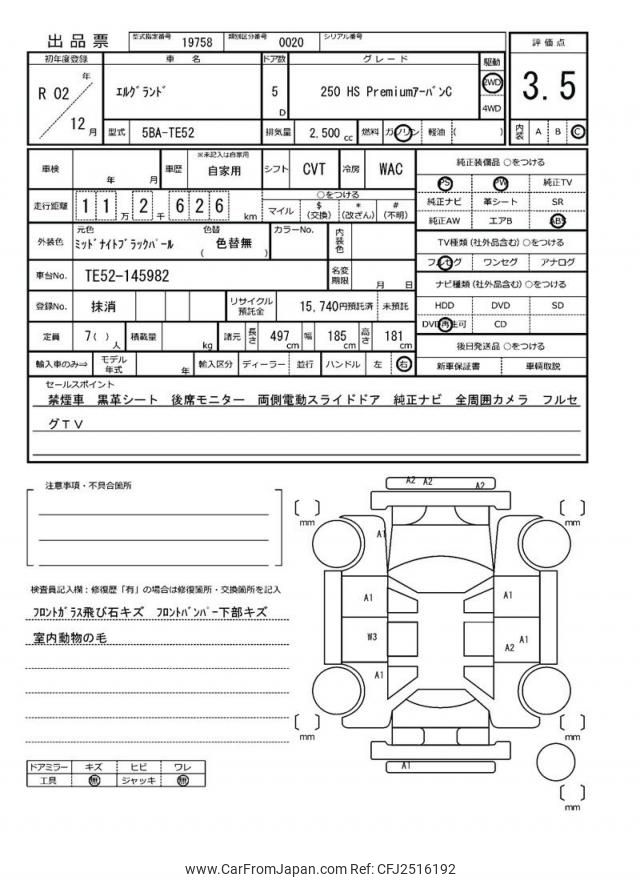 出品票
型式指定番号 19758 類別区分番号 0020 シリアル番号
初年度登録 車名 ドア数 グレード 駆動 評価点
R 02 年 12 月
エルグランド 5 D 250 HS PremiumアーバンC 2WD 4WD 3.5
型式 5BA-TE52 排気量 2.500 cc 燃料 ガソリン 軽油 ( ) 内装 A B C
車検 年 月 車歴 ※未記入は自家用 自家用 シフト CVT 冷房 WAC
走行距離 1 1 万 2 千 6 2 6 km ○をつける マイル $ (交換) * (改ざん) # (不明)
外装色 元色 ミッドナイトブラックパール 色替 ( 色替無 ) カラーNo. 内装色
車台No. TE52-145982 名変期限 月 日
登録No. 抹消 リサイクル預託金 15,740円預託済 未預託
定員 7 ( ) 人 積載量 kg 諸元 長さ 497 cm 幅 185 cm 高さ 181 cm
輸入車のみ⇒ モデル年式 年 輸入区分 ディーラー 並行 ハンドル 左 右
純正装備品 ○をつける
PS PW 純正TV
純正ナビ 革シート SR
純正AW エアB ABS
TV種類 (社外品含む) ○をつける
フルセグ ワンセグ アナログ
ナビ種類 (社外品含む) ○をつける
HDD DVD SD
DVD再生可 CD
後日発送品 ○をつける
新車保証書 車輌取説
セールスポイント
禁煙車 黒革シート 後席モニター 両側電動スライドドア 純正ナビ 全周囲カメラ フルセ
グTV
注意事項・不具合箇所
検査員記入欄：修復歴「有」の場合は修復箇所・交換箇所を記入
フロントガラス飛び石キズ フロントバンパー下部キズ
室内動物の毛
ドアミラー キズ ヒビ ワレ
工具 無 ジャッキ 無
A2 A2 A2
mm mm
A1
A1 A1
W3 A1
A2
A1
mm mm
A1
mm
www.CarFromJapan.com Ref: CFJ2516192